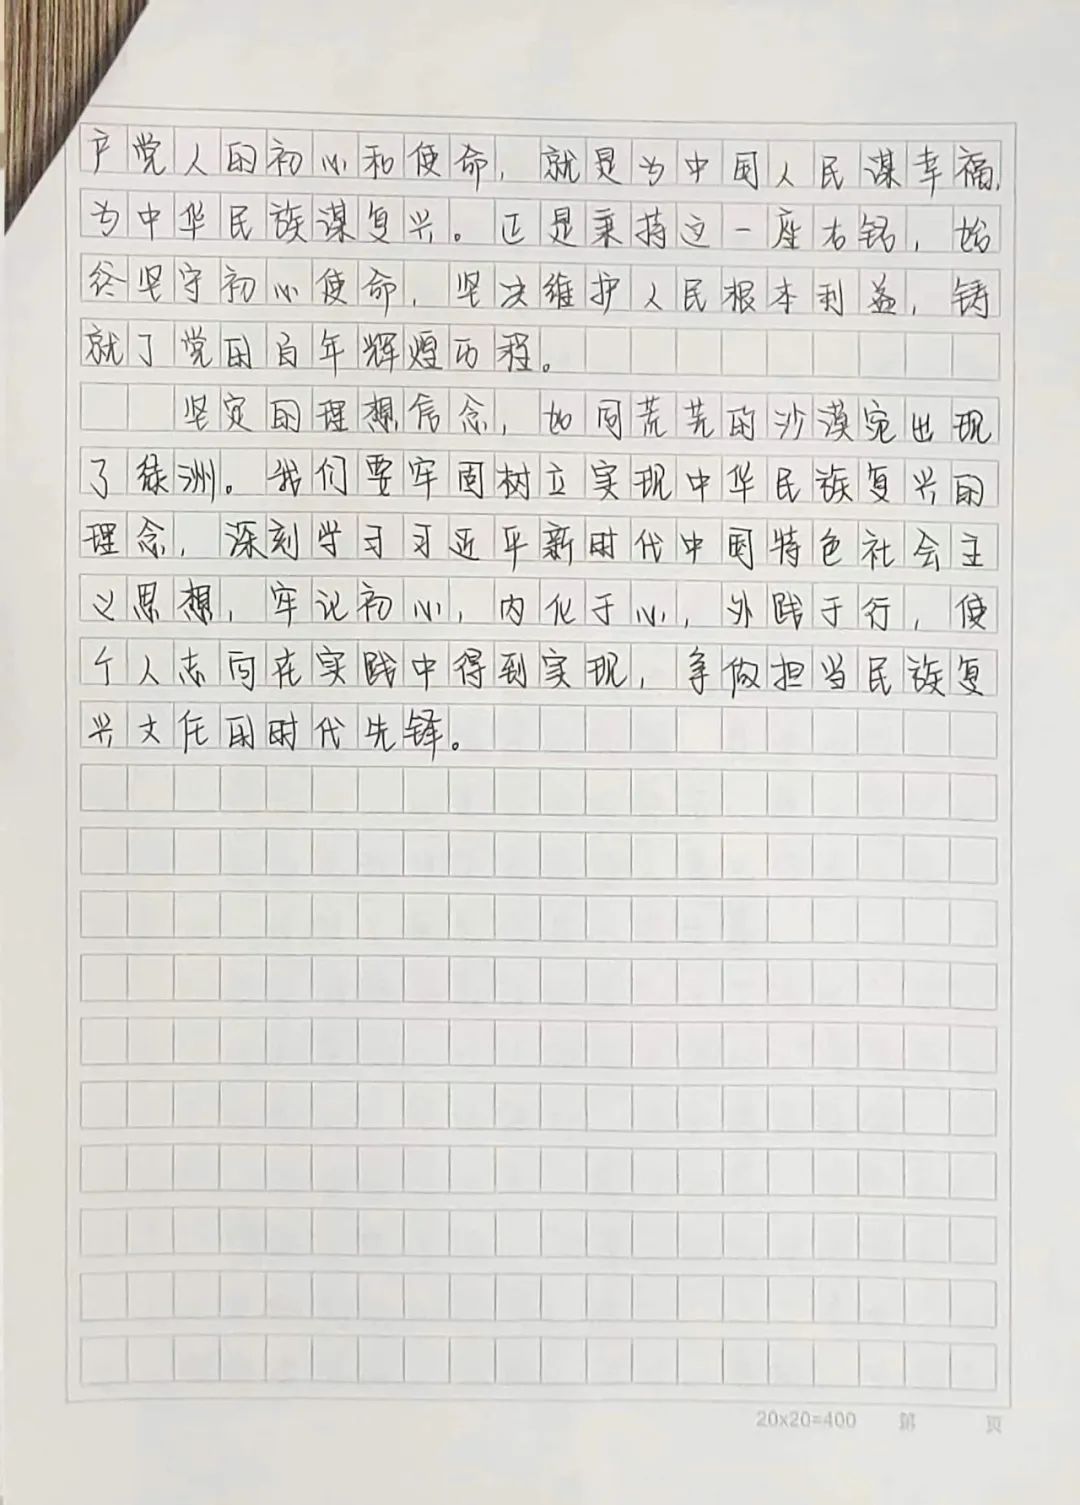 产党人的初心和使命，就是为中国人民谋幸福，
为中华民族谋复兴。正是秉持这一座右铭，始
终坚守初心使命，坚决维护人民根本利益，铸
就了党的百年辉煌历程。
坚定的理想信念，如同荒芜的沙漠宛出现
了绿洲。我们要牢固树立实现中华民族复兴的
理念，深刻学习习近平新时代中国特色社会主
义思想，牢记初心，内化于心，外践于行，使
个人志向在实践中得到实现，争做担当民族复
兴大任的时代先锋。
20x20=400 第 页